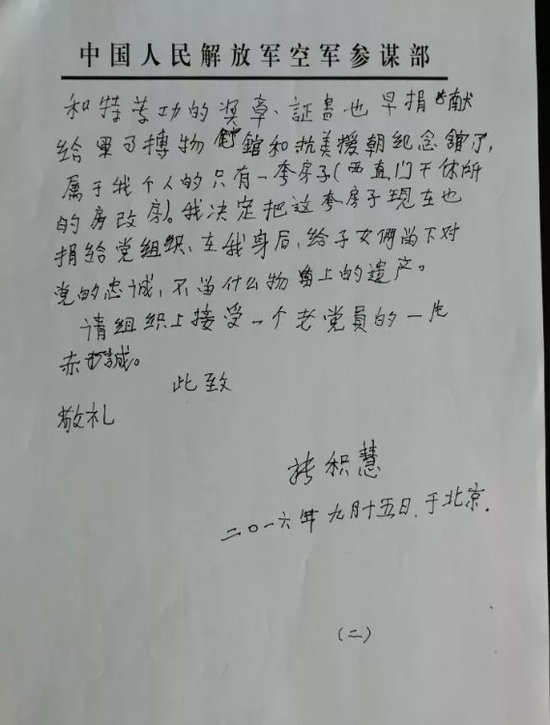 中国人民解放军空军参谋部
和特等功的奖章、証書也早捐献
给軍事博物館和抗美援朝纪念館了,
属于我个人的只有一套房子(西直门干休所
的房改房)。我决定把这套房子现在也
捐给党组织、在我身后,给子女們留下对
党的忠诚,不留什么物質上的遗产。
请组织上接受一个老党員的一片
赤誠。
此致
敬礼
张积慧
二〇一六年九月十五日.于北京.
(二)